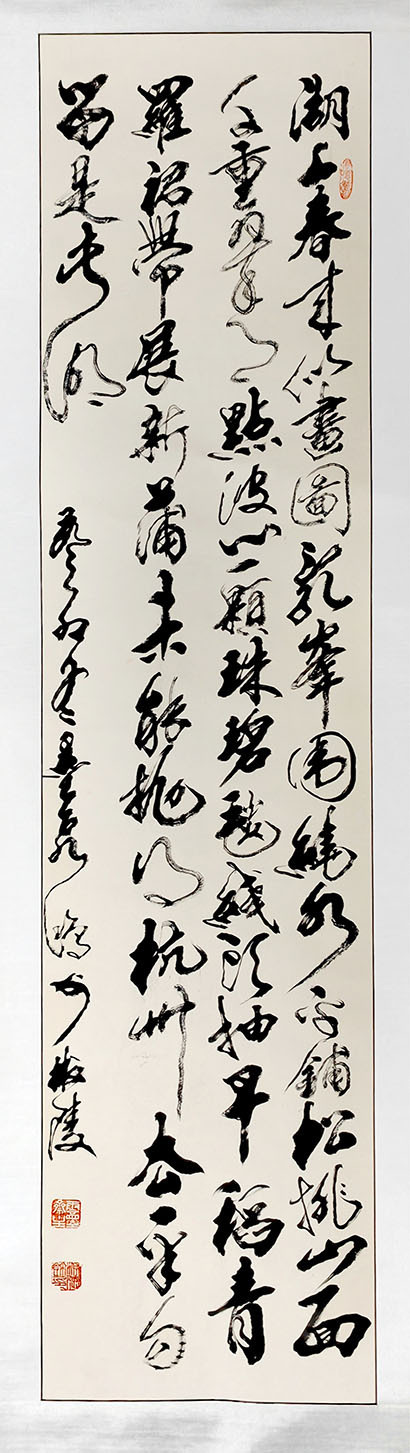 湖上春来似畫圖亂峯围繞水平鋪松排山面
千重翠月點波心一顆珠碧毯綫頭抽早稻青
羅裙帶展新蒲未能抛得杭州去一半勾
留是此湖